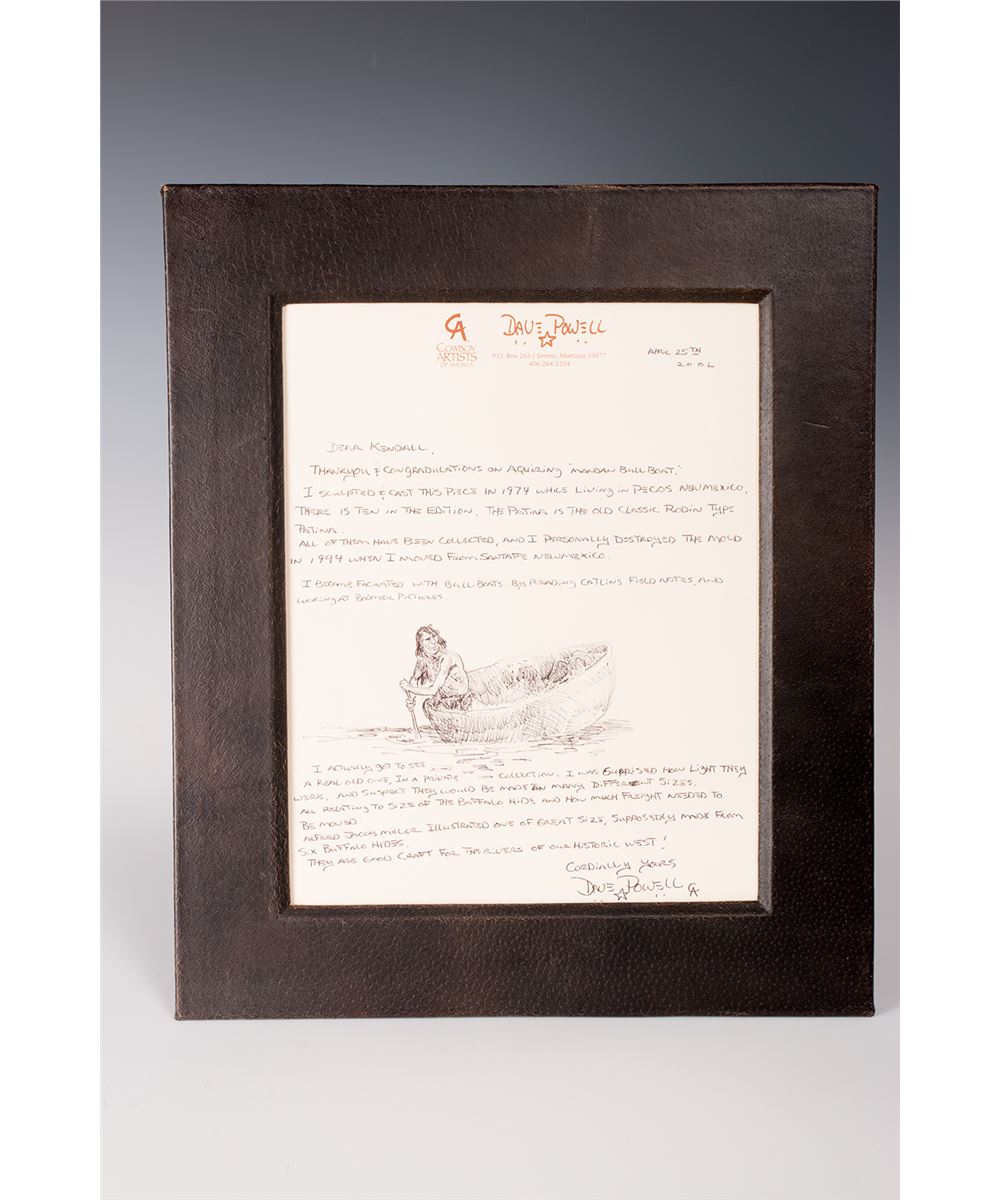 CA
COWBOY
ARTISTS
OF AMERICA
DAVE POWELL
P.O. Box 265 | Simms, Montana 59477
406.264.5204
APRIL 25TH
2006
DEAR KENDALL,
THANKYOU & CONGRADULATIONS ON AQUIRING "MANDAN BULL BOAT."
I SCULPTED & CAST THIS PIECE IN 1974 WHILE LIVING IN PECOS NEW MEXICO,
THERE IS TEN IN THE EDITION, THE PATINA IS THE OLD CLASSIC RODIN TYPE
PATINA.
ALL OF THEM HAVE BEEN COLLECTED, AND I PERSONALLY DESTROYED THE MOLD
IN 1994 WHEN I MOVED FROM SANTA FE NEW MEXICO.
I BECAME FACINATED WITH BULL BOATS. BY READING CATLINS FIELD NOTES, AND
LOOKING AT BODMER PICTURES.
I ACTUALLY GOT TO SEE
A REAL OLD ONE, IN A PRIVATE COLLECTION, I WAS SUPRISED HOW LIGHT THEY
WERE, AND SUSPECT THEY WOULD BE MADE IN MANY DIFFERENT SIZES.
ALL RELATING TO SIZE OF THE BUFFALO HIDE AND HOW MUCH FREIGHT NEEDED TO
BE MOVED.
ALFRED JACOB MILLER ILLUSTRATED ONE OF GREAT SIZE, SUPPOSEDLY MADE FROM
SIX BUFFALO HIDES.
THEY ARE GOOD CRAFT FOR THE RIVERS OF OUR HISTORIC WEST!
CORDIALLY YOURS
DAVE POWELL CA